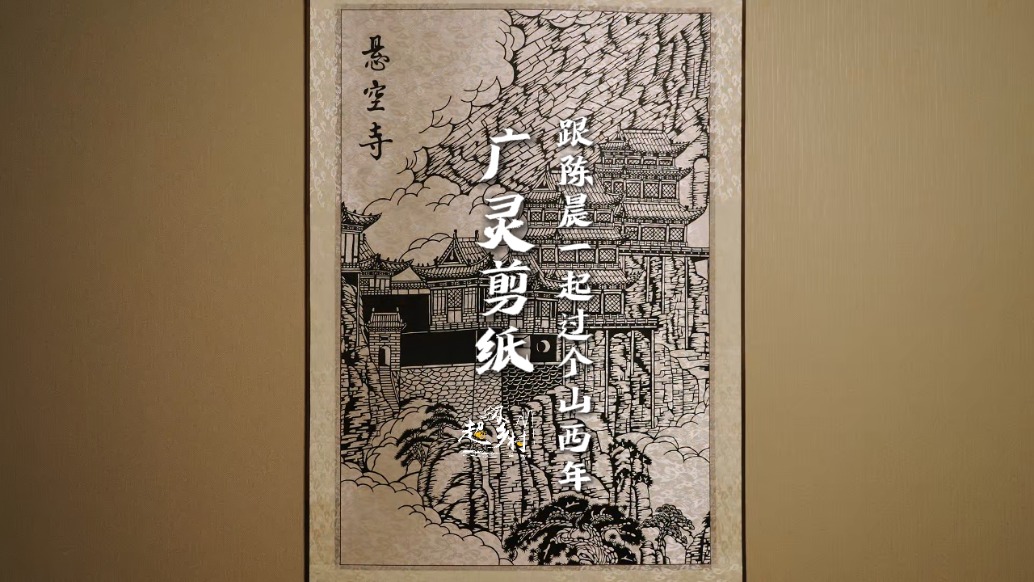 悬空寺
跟陈晨一起过个山西年
广灵剪纸